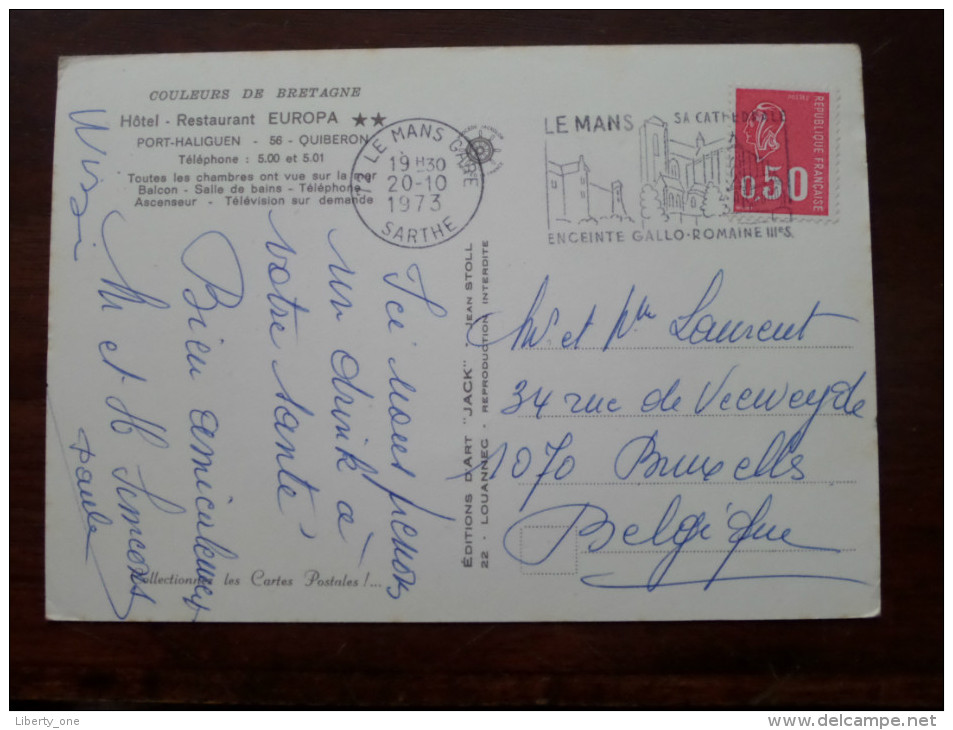 COULEURS DE BRETAGNE
Hôtel - Restaurant EUROPA ★★
PORT-HALIGUEN - 56 - QUIBERON
Téléphone : 5.00 et 5.01
Toutes les chambres ont vue sur la mer
Balcon - Salle de bains - Téléphone
Ascenseur - Télévision sur demande
72 LE MANS GARE
19 H30
20-10
1973
SARTHE
LE MANS SA CATHEDRALE
ENCEINTE GALLO-ROMAINE IIIeS.
REPUBLIQUE FRANÇAISE
0,50
Ici nous prenons
un drink à
votre santé
Bien amicalement
M et M Simeons
Paula
ÉDITIONS D'ART "JACK" JEAN STOLL
22 - LOUANNEC - REPRODUCTION INTERDITE
Mr et Mme Laurent
34 rue de Veeweyde
1070 Bruxelles
Belgique
Collectionnez les Cartes Postales !...
Liberty_one
delcampe.net